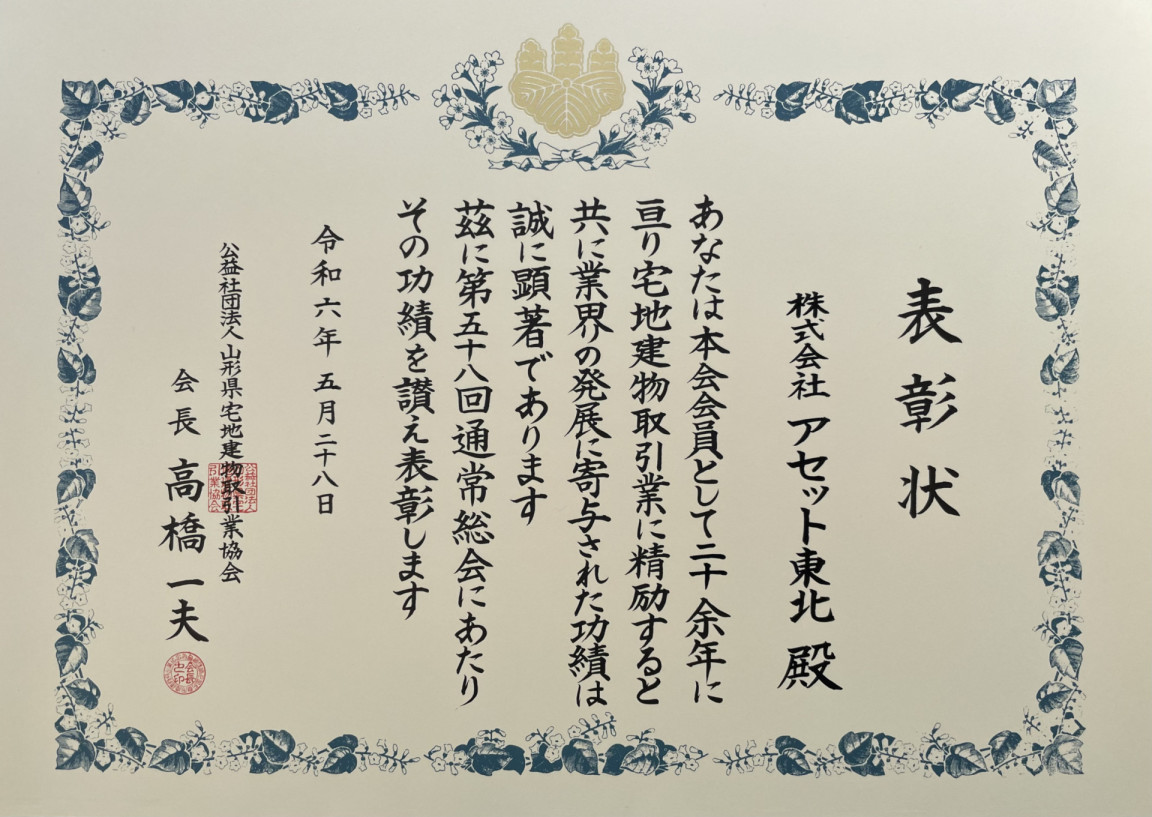 表彰状
株式会社 アセット東北 殿
あなたは本会会員として二十余年に
亘り宅地建物取引業に精励すると
共に業界の発展に寄与された功績は
誠に顕著であります
茲に第五十八回通常総会にあたり
その功績を讃え表彰します
令和六年 五月二十八日
公益社団法人 山形県宅地建物取引業協会
会長 高橋一夫